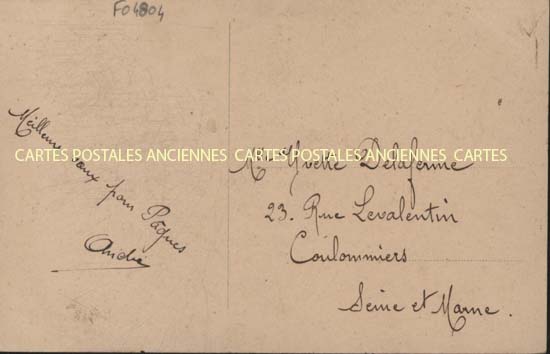 F04804
Meilleurs vœux pour Pâques
André
CARTES POSTALES ANCIENNES CARTES POSTALES ANCIENNES CARTES
Mlle Yvette Delaferme
23. Rue Levalentin
Coulommiers
Seine et Marne.